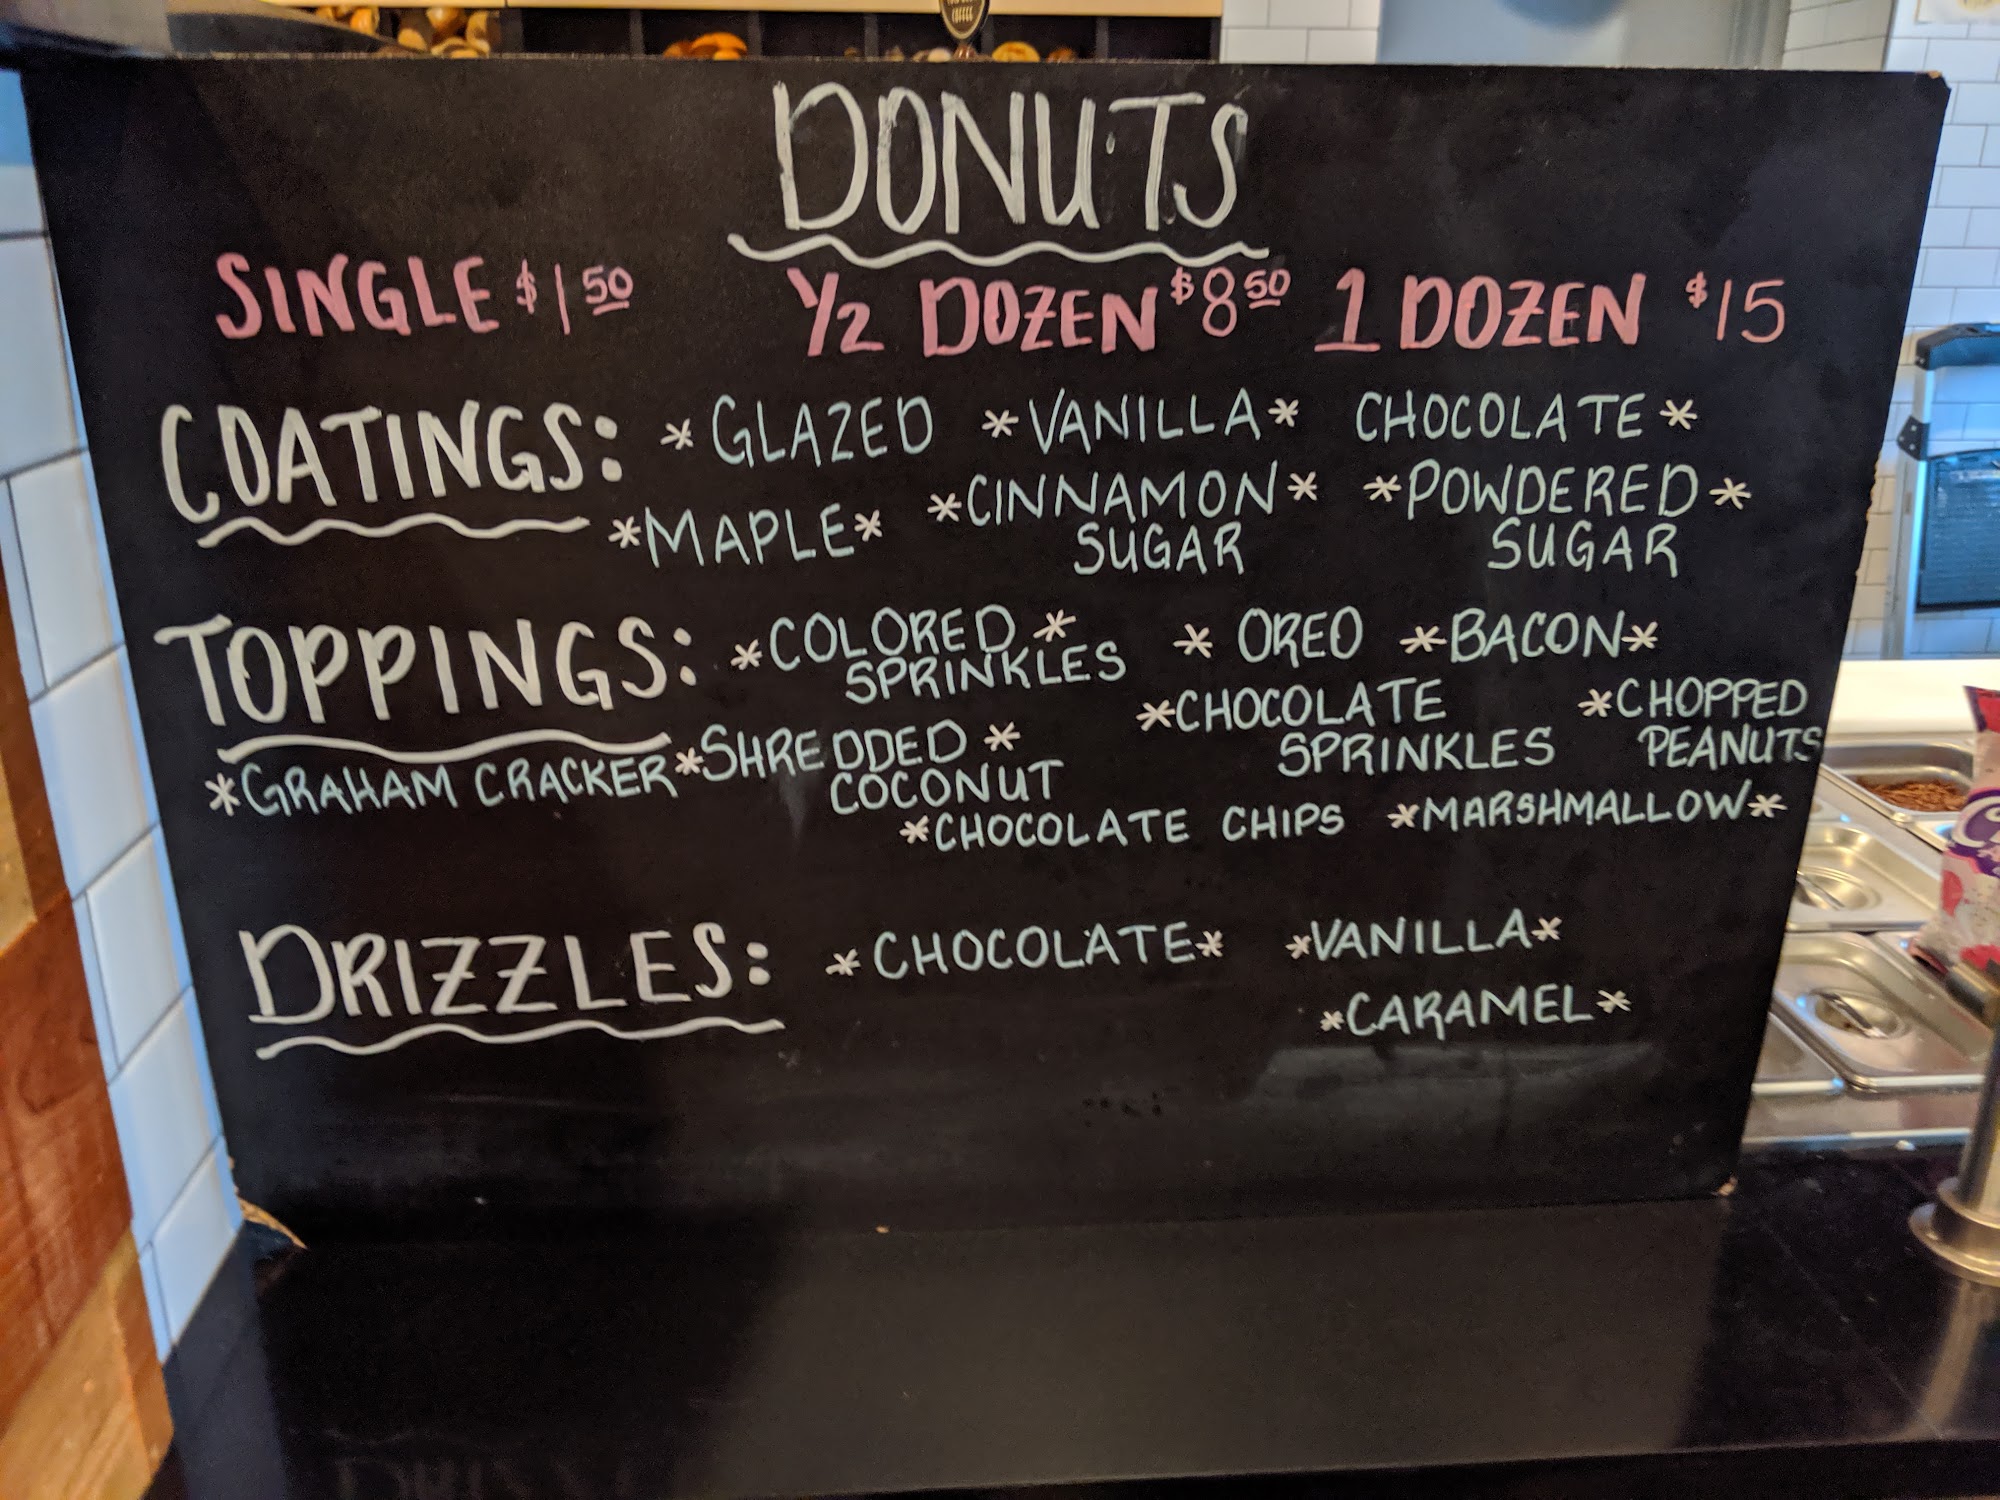 COFFEE
DONUTS
SINGLE $1.50 1/2 DOZEN $8.50 1 DOZEN $15
COATINGS: * GLAZED * VANILLA * CHOCOLATE *
* MAPLE * * CINNAMON * * POWDERED *
SUGAR SUGAR
TOPPINGS: * COLORED * * OREO * BACON *
SPRINKLES
* CHOCOLATE * CHOPPED
SPRINKLES PEANUTS
* GRAHAM CRACKER * SHREDDED *
COCONUT
* CHOCOLATE CHIPS * MARSHMALLOW *
DRIZZLES: * CHOCOLATE * * VANILLA *
* CARAMEL *